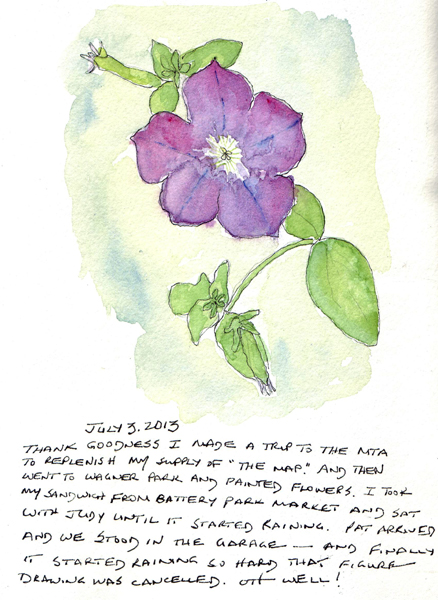 JULY 3, 2013
THANK GOODNESS I MADE A TRIP TO THE MTA
TO REPLENISH MY SUPPLY OF "THE MAP." AND THEN
WENT TO WAGNER PARK AND PAINTED FLOWERS. I TOOK
MY SANDWICH FROM BATTERY PARK MARKET AND SAT
WITH JUDY UNTIL IT STARTED RAINING. PAT ARRIVED
AND WE STOOD IN THE GARAGE — AND FINALLY
IT STARTED RAINING SO HARD THAT FIGURE
DRAWING WAS CANCELLED. OH WELL!